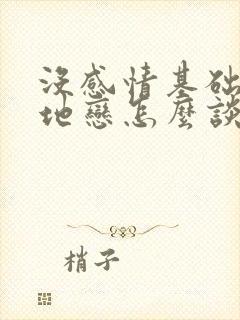 没感情基础
地戀怎麼談
梢子